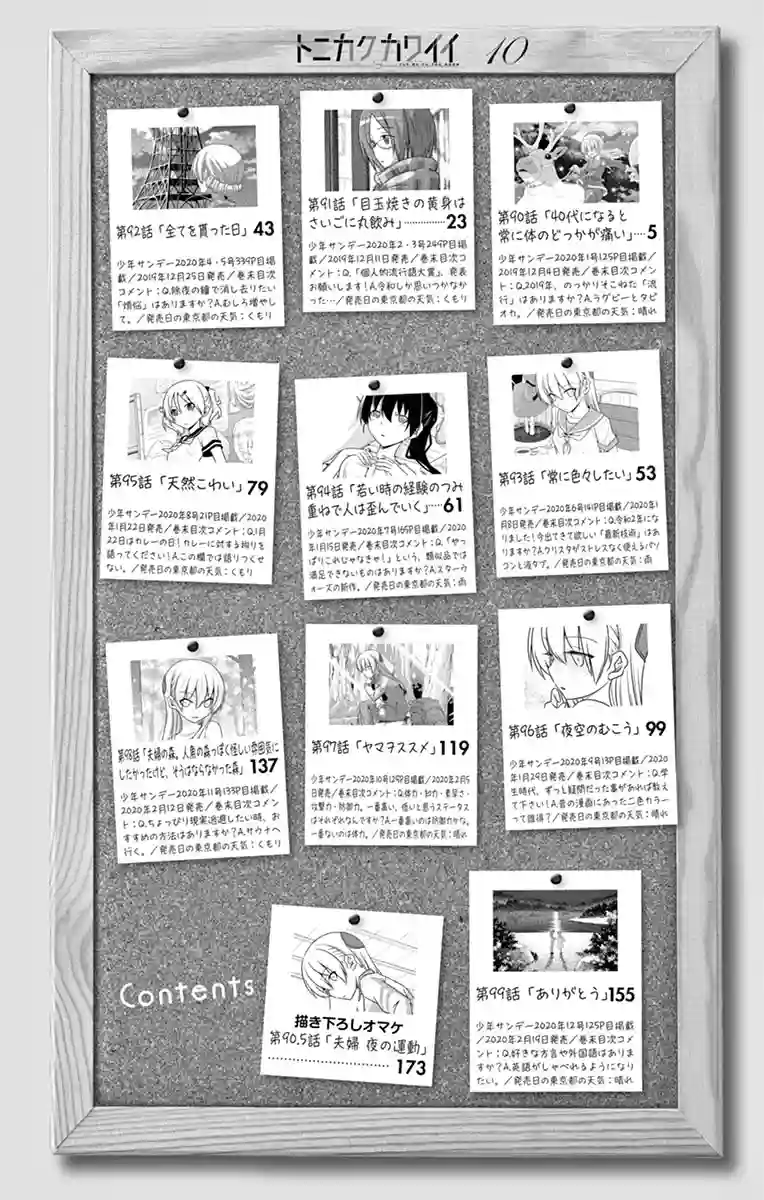 トニカクカワイイ 10
第90話「40代になると
常に体のどっかが痛い」…5
少年サンデー2020年1号125P目掲
載／2019年12月4日発売／巻末目次
コメント：Q.2019年、のっかりそこねた「流
行」はありますか？A.ラグビーとタピ
オカ。／発売日の東京都の天気：晴れ
第91話「目玉焼きの黄身は
さいごに丸飲み」……………23
少年サンデー2020年2・3号249P目掲
載／2019年12月11日発売／巻末目次コ
メント：Q.「個人的流行語大賞」、発表
お願いします！A.令和しか思いつかなか
った…／発売日の東京都の天気：くもり
第92話「全てを貰った日」43
少年サンデー2020年4・5号339P目掲
載／2019年12月25日発売／巻末目次
コメント：Q.除夜の鐘で消し去りたい
「煩悩」はありますか？A.むしろ増やし
て。／発売日の東京都の天気：くもり
第93話「常に色々したい」53
少年サンデー2020年6号141P目掲載／2020年1
月8日発売／巻末目次コメント：Q.令和2年にな
りました！今出てきて欲しい「最新技術」はあ
りますか？A.クリスタがストレスなく使えるパソ
コンと液タブ。／発売日の東京都の天気：雨
第94話「若い時の経験のつみ
重ねで人は歪んでいく」…61
少年サンデー2020年7号165P目掲載／2020
年1月15日発売／巻末目次コメント：Q.「やっ
ぱりこれじゃなきゃ！」という、類似品では
満足できないものはありますか？A.スターウ
ォーズの新作。／発売日の東京都の天気：雨
第95話「天然こわい」79
少年サンデー2020年8号21P目掲載／2020
年1月22日発売／巻末目次コメント：Q.1月
22日はカレーの日！カレーに対する拘りを
語ってください！A.この欄では語りつくせ
ない。／発売日の東京都の天気：くもり
第96話「夜空のむこう」99
少年サンデー2020年9号13P目掲載／2020
年1月29日発売／巻末目次コメント：Q.学
生時代、ずっと疑問だった事があれば教え
て下さい！A.昔の漫画にあった二色カラー
って誰得？／発売日の東京都の天気：晴れ
第97話「ヤマヲススメ」119
少年サンデー2020年10号129P目掲載／2020年2月5
日発売／巻末目次コメント：Q.体力・知力・素早さ・
攻撃力・防御力。一番高い、低いと思うステータス
はそれぞれなんですか？A.一番高いのは防御力かな。
一番ないのは体力。／発売日の東京都の天気：晴れ
第98話「夫婦の森。人魚の森っぽく怪しい雰囲気に
したかったけど、そうはならなかった森」137
少年サンデー2020年11号133P目掲載／
2020年2月12日発売／巻末目次コメン
ト：Q.ちょっぴり現実逃避したい時、お
すすめの方法はありますか？A.サウナへ
行く。／発売日の東京都の天気：くもり
第99話「ありがとう」155
少年サンデー2020年12号125P目掲載
／2020年2月19日発売／巻末目次コメ
ント：Q.好きな方言や外国語はありま
すか？A.英語がしゃべれるようになり
たい。／発売日の東京都の天気：晴れ
Contents
描き下ろしオマケ
第90.5話「夫婦 夜の運動」
……………………………173